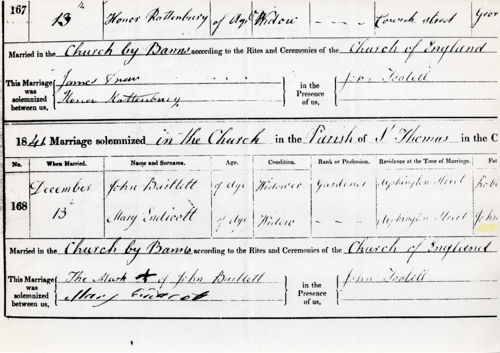 167 13th Honor Rattenbury of Age Widow — Cowick Street Geor
Married in the Church by Banns according to the Rites and Ceremonies of the Church of England
This Marriage was solemnized between us, James in the Presence of us, John
Honor Rattenbury
1841 Marriage solemnized in the Church in the Parish of St Thomas in the C
No. When Married. Name and Surname. Age. Condition. Rank or Profession. Residence at the Time of Marriage. Fat
168 December 13th John Bartlett of Age Widower Gardener Street Robe
Mary Endicott of Age Widow — Street John
Married in the Church by Banns according to the Rites and Ceremonies of the Church of England
This Marriage was solemnized between us, The Mark X of John Bartlett in the Presence of us, John
Mary Endacott